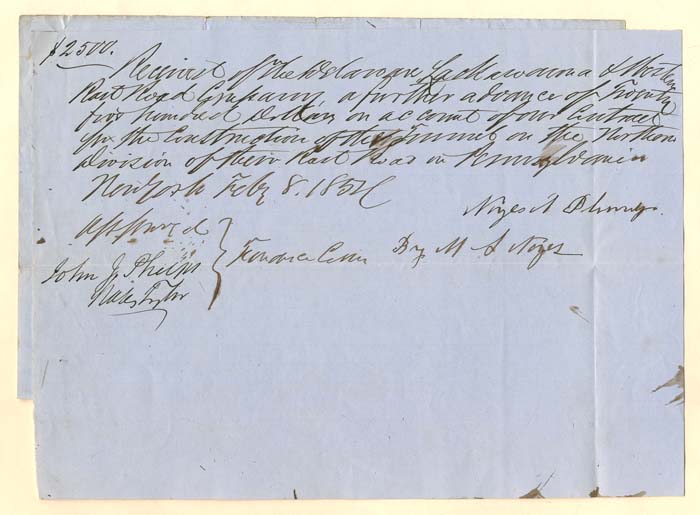 $2500.
Received of the Delaware Lackawanna & Western
Rail Road Company, a further advance of Twenty
five hundred Dollars on account of our Contract
for the Construction of the Tunnel on the Northern
Division of their Rail Road in Pennsylvania
New York Feby 8. 1854
Noyes &
Approved
By M A Noyes
John J Phelps
Finance Com